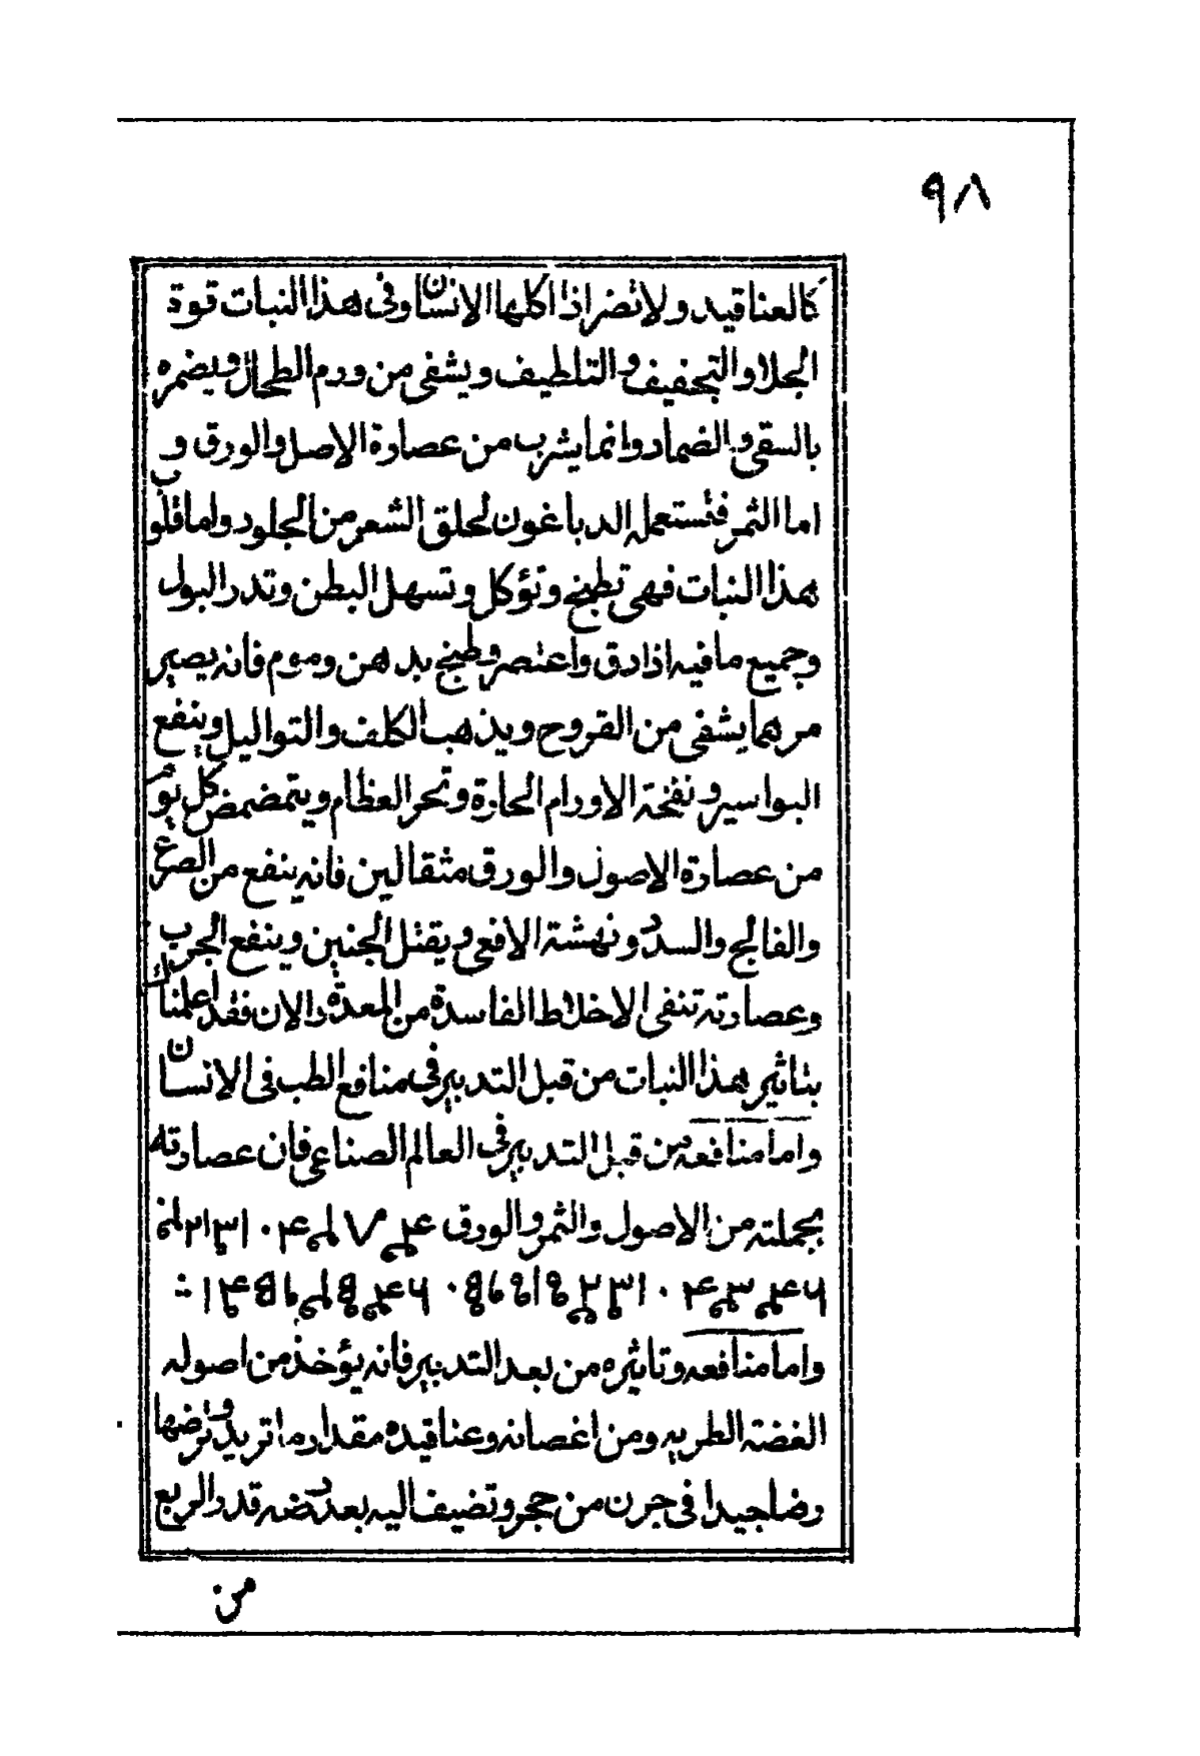 ٩٨
كالعناقيد ولا تضر اذا اكلها الانسان وفى هذا النبات قوة
الجلاو التجفيف والتلطيف ويشفى من ورم الطحال ويضمره
بالسقى والضماد وانما يشرب من عصارة الاصل والورق و
اما الثمر فتستعمله الدباغون لحلق الشعر من الجلود واما قلوب
هذا النبات فهى تطبخ وتؤكل وتسهل البطن وتدر البول
وجميع ما فيه اذا دق واعتصر وطبخ بدهن وموم فانه يصير
مرهما يشفى من القروح ويذهب الكلف والتواليل وينفع
البواسير ونفخة الاورام الحارة وتحر العظام ويتمضمض كل يوم
من عصارة الاصول والورق مثقالين فانه ينفع من الصرع
والفالج والسدد ونهشة الافعى ويقتل الجنين وينفع الجرب
وعصارته تنفى الاخلاط الفاسدة من المعدة والان فقد اعلمناك
بتاثير هذا النبات من قبل التدبير فى منافع الطب فى الانسان
واما منافعه من قبل التدبير فى العالم الصناعى فان عصارته
بجملته من الاصول والثمر والورق
واما منافعه وتاثيره من بعد التدبير فانه يؤخذ من اصوله
الغضة الطريه ومن اغصانه وعناقيده مقدار ما تريد وترضها
رضا جيدا فى جرن من حجر وتضيف اليه بعد رضه قدر الربع
من